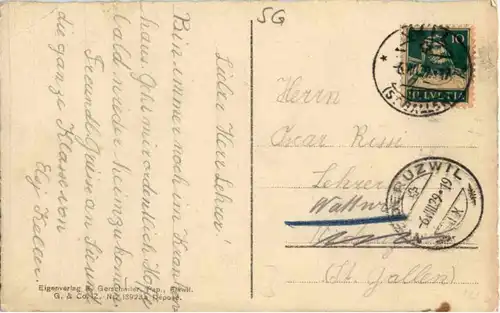 Lieber Herr Lehrer!
Bin immer noch im Kranken-
haus. Geht mir ordentlich. Hoffe
bald wieder heimzukommen.
Freundl. Grüsse an Sie und
die ganze Klasse von
Elsy Keller.
Eigenverlag G. Gerschwiler, Pap., Flawil.
G. & Co. Z. No. 13928a Déposé.
SG
10
HELVETIA
(ST. GALLEN)
Herrn
Oscar Rissi
Lehrer
Wattwil
(St. Gallen)
NIEDERUZWIL
-6.VIII.29.-19